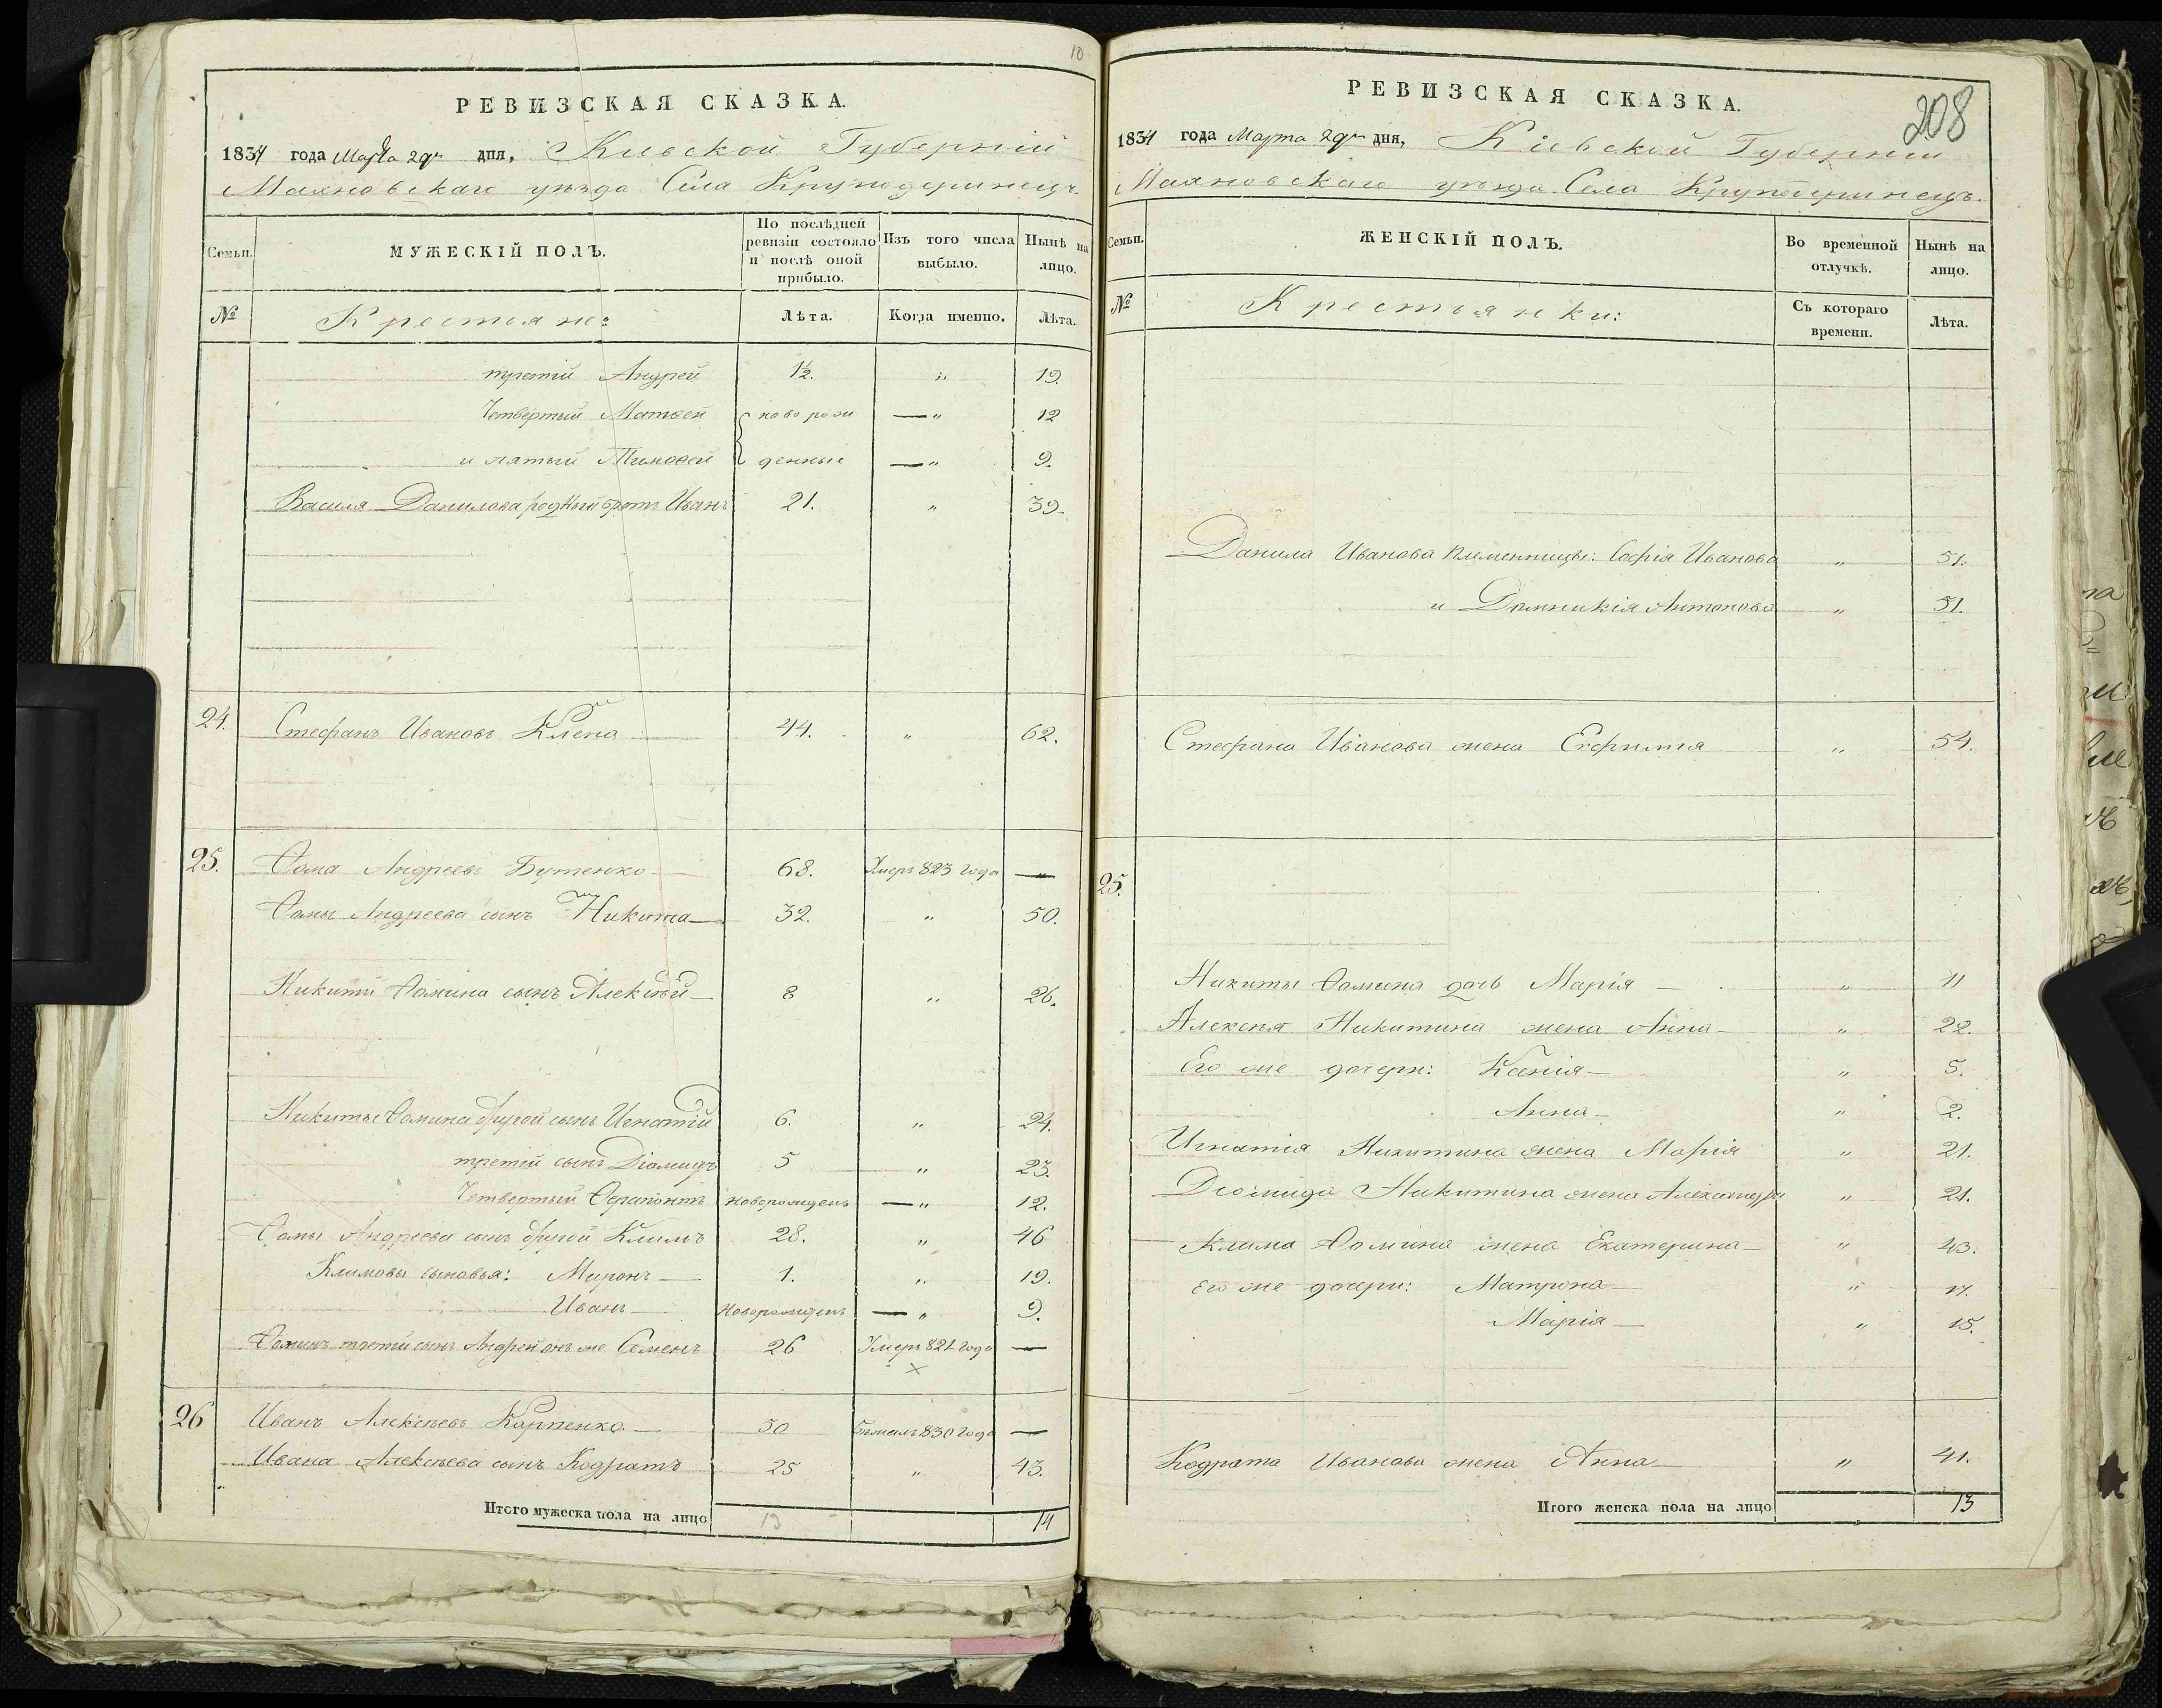 10
РЕВИЗСКАЯ СКАЗКА.
1834 года Марта 29го дня, Киевской Губернии
Махновскаго уезда Села Круподеринецъ.
Семьи. МУЖЕСКІЙ ПОЛЪ. По послѣдней ревизіи состояло и послѣ оной прибыло. Изъ того числа выбыло. Нынѣ на лицо.
№ Крестьяне: Лѣта. Когда именно. Лѣта.
третій Андрей 1½. „ 19.
Четвертый Матвей новорож „ 12
и пятый Тимофей денные „ 9.
Василя Данилова родный братъ Иванъ 21. „ 39.
24. Стефанъ Ивановъ Клена 44. „ 62.
25. Ѳома Андреевъ Бутенко 68. Умеръ 823 года —
Ѳомы Андреева сынъ Никита 32. „ 50.
Никиты Ѳомина сынъ Алексѣй 8 „ 26.
Никиты Ѳомина другой сынъ Игнатій 6. „ 24.
третій сынъ Діомидъ 5 „ 23.
Четвертый Ѳерапонтъ новорожденъ — „ 12.
Ѳомы Андреева сынъ другой Климъ 28. „ 46
Климовы сыновья: Миронъ 1. „ 19.
Иванъ новорожденъ — „ 9.
Ѳоминъ третій сынъ Андрей онъ же Семенъ 26 Умеръ 821 года —
26 Иванъ Алексѣевъ Карпенко 50 Бежалъ 830 года —
Ивана Алексѣева сынъ Кодратъ 25 „ 43.
Итого мужеска пола на лицо 13 14
208
РЕВИЗСКАЯ СКАЗКА.
1834 года Марта 29го дня, Кіевской Губерніи
Махновскаго уезда Села Круподеринецъ.
Семьи. ЖЕНСКІЙ ПОЛЪ. Во временной отлучкѣ. Нынѣ на лицо.
№ Крестьянки: Съ котораго времени. Лѣта.
Данила Иванова племенницы: Софія Иванова „ 51.
и Домникія Антонова „ 51.
Стефана Иванова жена Ефимія „ 54.
25.
Никиты Ѳомина дочь Марія „ 11
Алексѣя Никитина жена Анна „ 22.
Его же дочери: Ксенія „ 5.
Анна „ 2.
Игнатія Никитина жена Марія „ 21.
Діомида Никитина жена Александра „ 21.
Клима Ѳомина жена Екатерина „ 43.
Его же дочери: Матрона „ 17.
Марія „ 15.
Кодрата Иванова жена Анна „ 41.
Итого женска пола на лицо 13